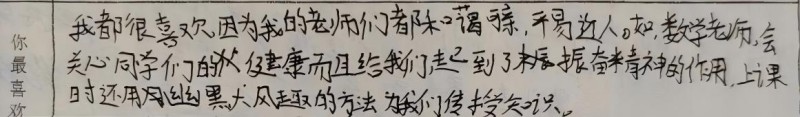 我都很喜欢,因为我的老师们都和蔼可亲,平易近人。如,数学老师,会
关心同学们的 健康而且给我们起到了 振奋精神的作用,上课
时还用 幽默大风趣的方法为我们传授知识。
你最喜欢